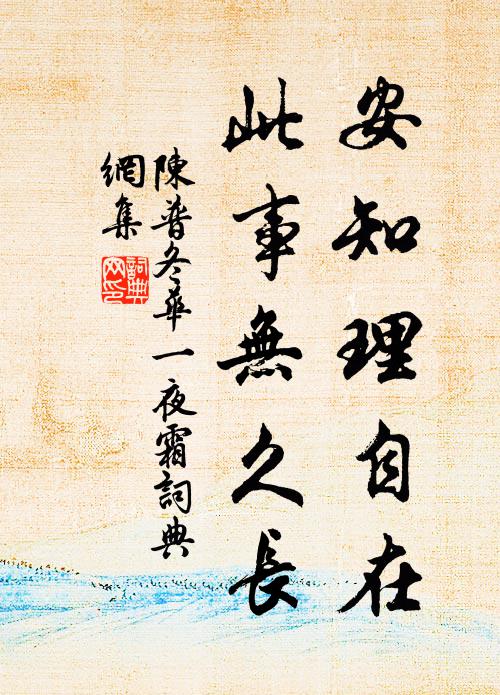 安知理自在
此事無久長
陳普冬華一夜霜詞典
網集
詞典
网印